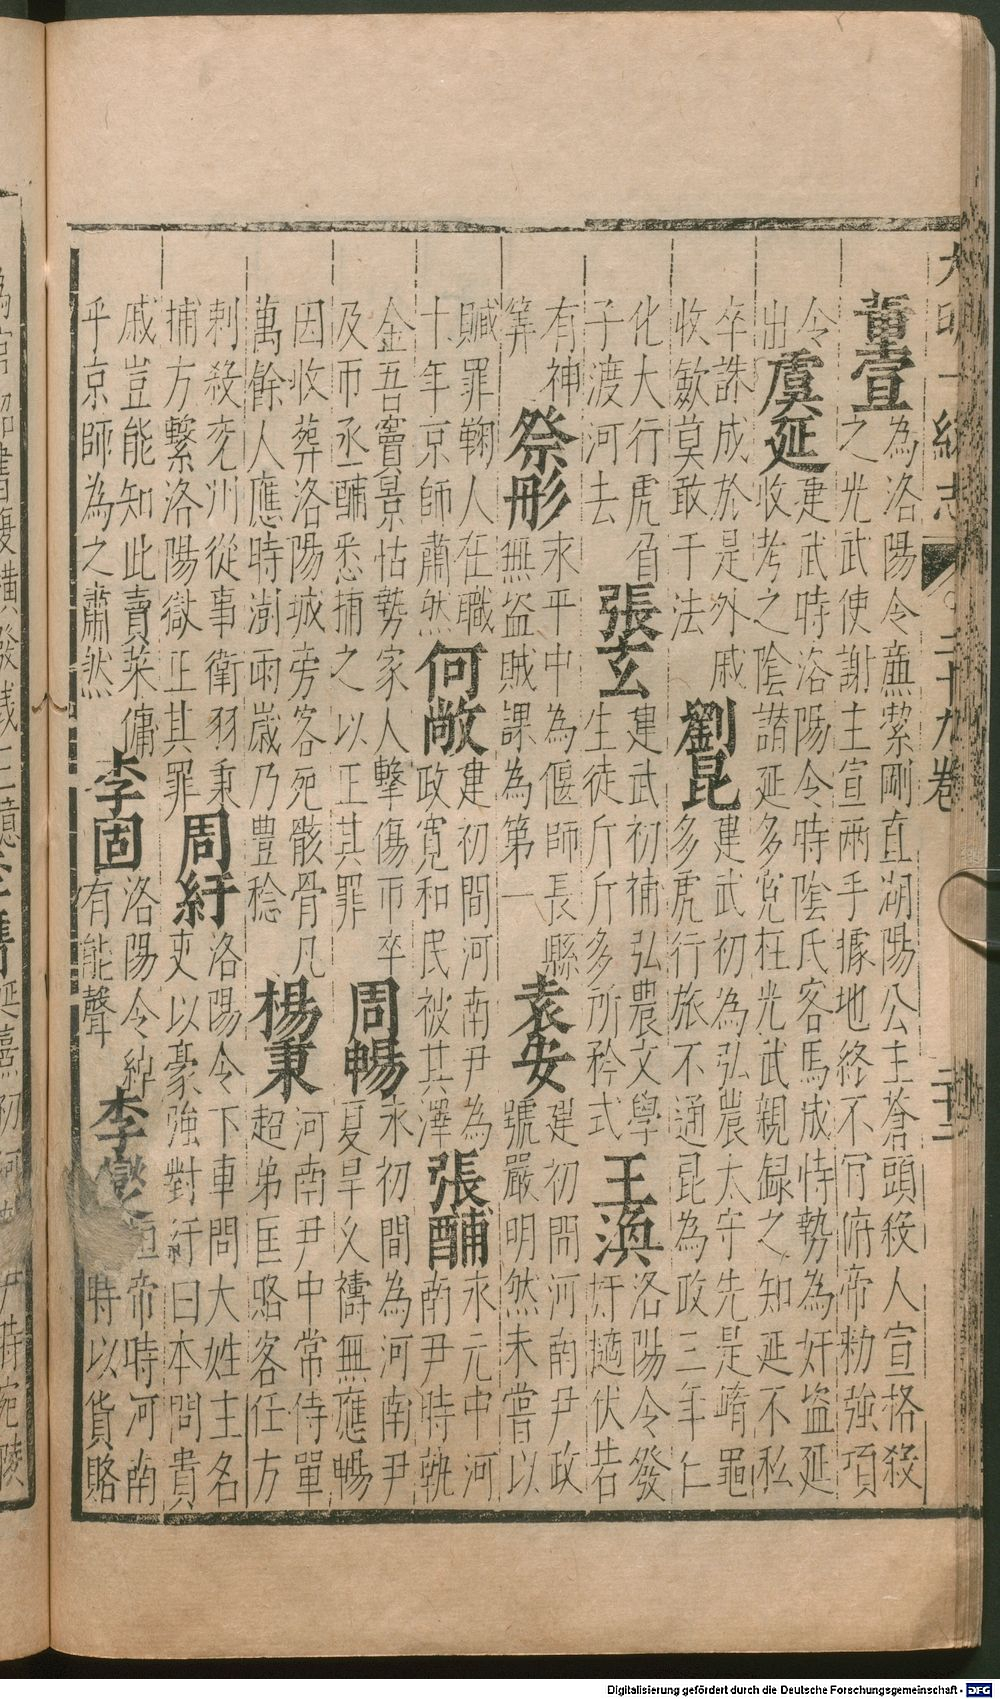 大明一統志 二十九卷
董宣
為洛陽令亷絜剛直湖陽公主蒼頭殺人宣格殺
之光武使謝主宣兩手據地終不肎俯帝勑強項
令
出
虞延
建武時洛陽令時陰氏客馬成恃勢為奸盜延
收考之陰譛延多寃枉光武親録之知延不私
卒誅成於是外戚
收歛莫敢干法
劉昆
建武初為弘農太守先是崤黽
多虎行旅不通昆為政三年仁
化大行虎負
子渡河去
張玄
建武初補弘農文學
生徒斤斤多所矜式
王渙
洛陽令發
奸擿伏若
有神
筭
祭肜
永平中為偃師長縣
無盜賊課為第一
袁安
建初間河南尹政
號嚴明然未嘗以
贓罪鞠人在職
十年京師肅然
何敞
建初間河南尹為
政寛和民被其澤
張酺
永元中河
南尹時執
金吾竇景怙勢家人擊傷市卒
及市丞酺悉捕之以正其罪
周暢
永初間為河南尹
夏旱乆禱無應暢
因收葬洛陽城旁客死骸骨凡
萬餘人應時澍雨歳乃豊稔
楊秉
河南尹中常侍單
超弟匡賂客任方
刺殺兖州從事衛羽秉
捕方繫洛陽獄正其罪
周紆
洛陽令下車問大姓主名
吏以豪強對紆曰本問貴
戚豈能知此賣菜傭
乎京師為之肅然
李固
洛陽令綽
有能聲
李燮
桓帝時河南
時以貨賂
Digitalisierung gefördert durch die Deutsche Forschungsgemeinschaft - DFG